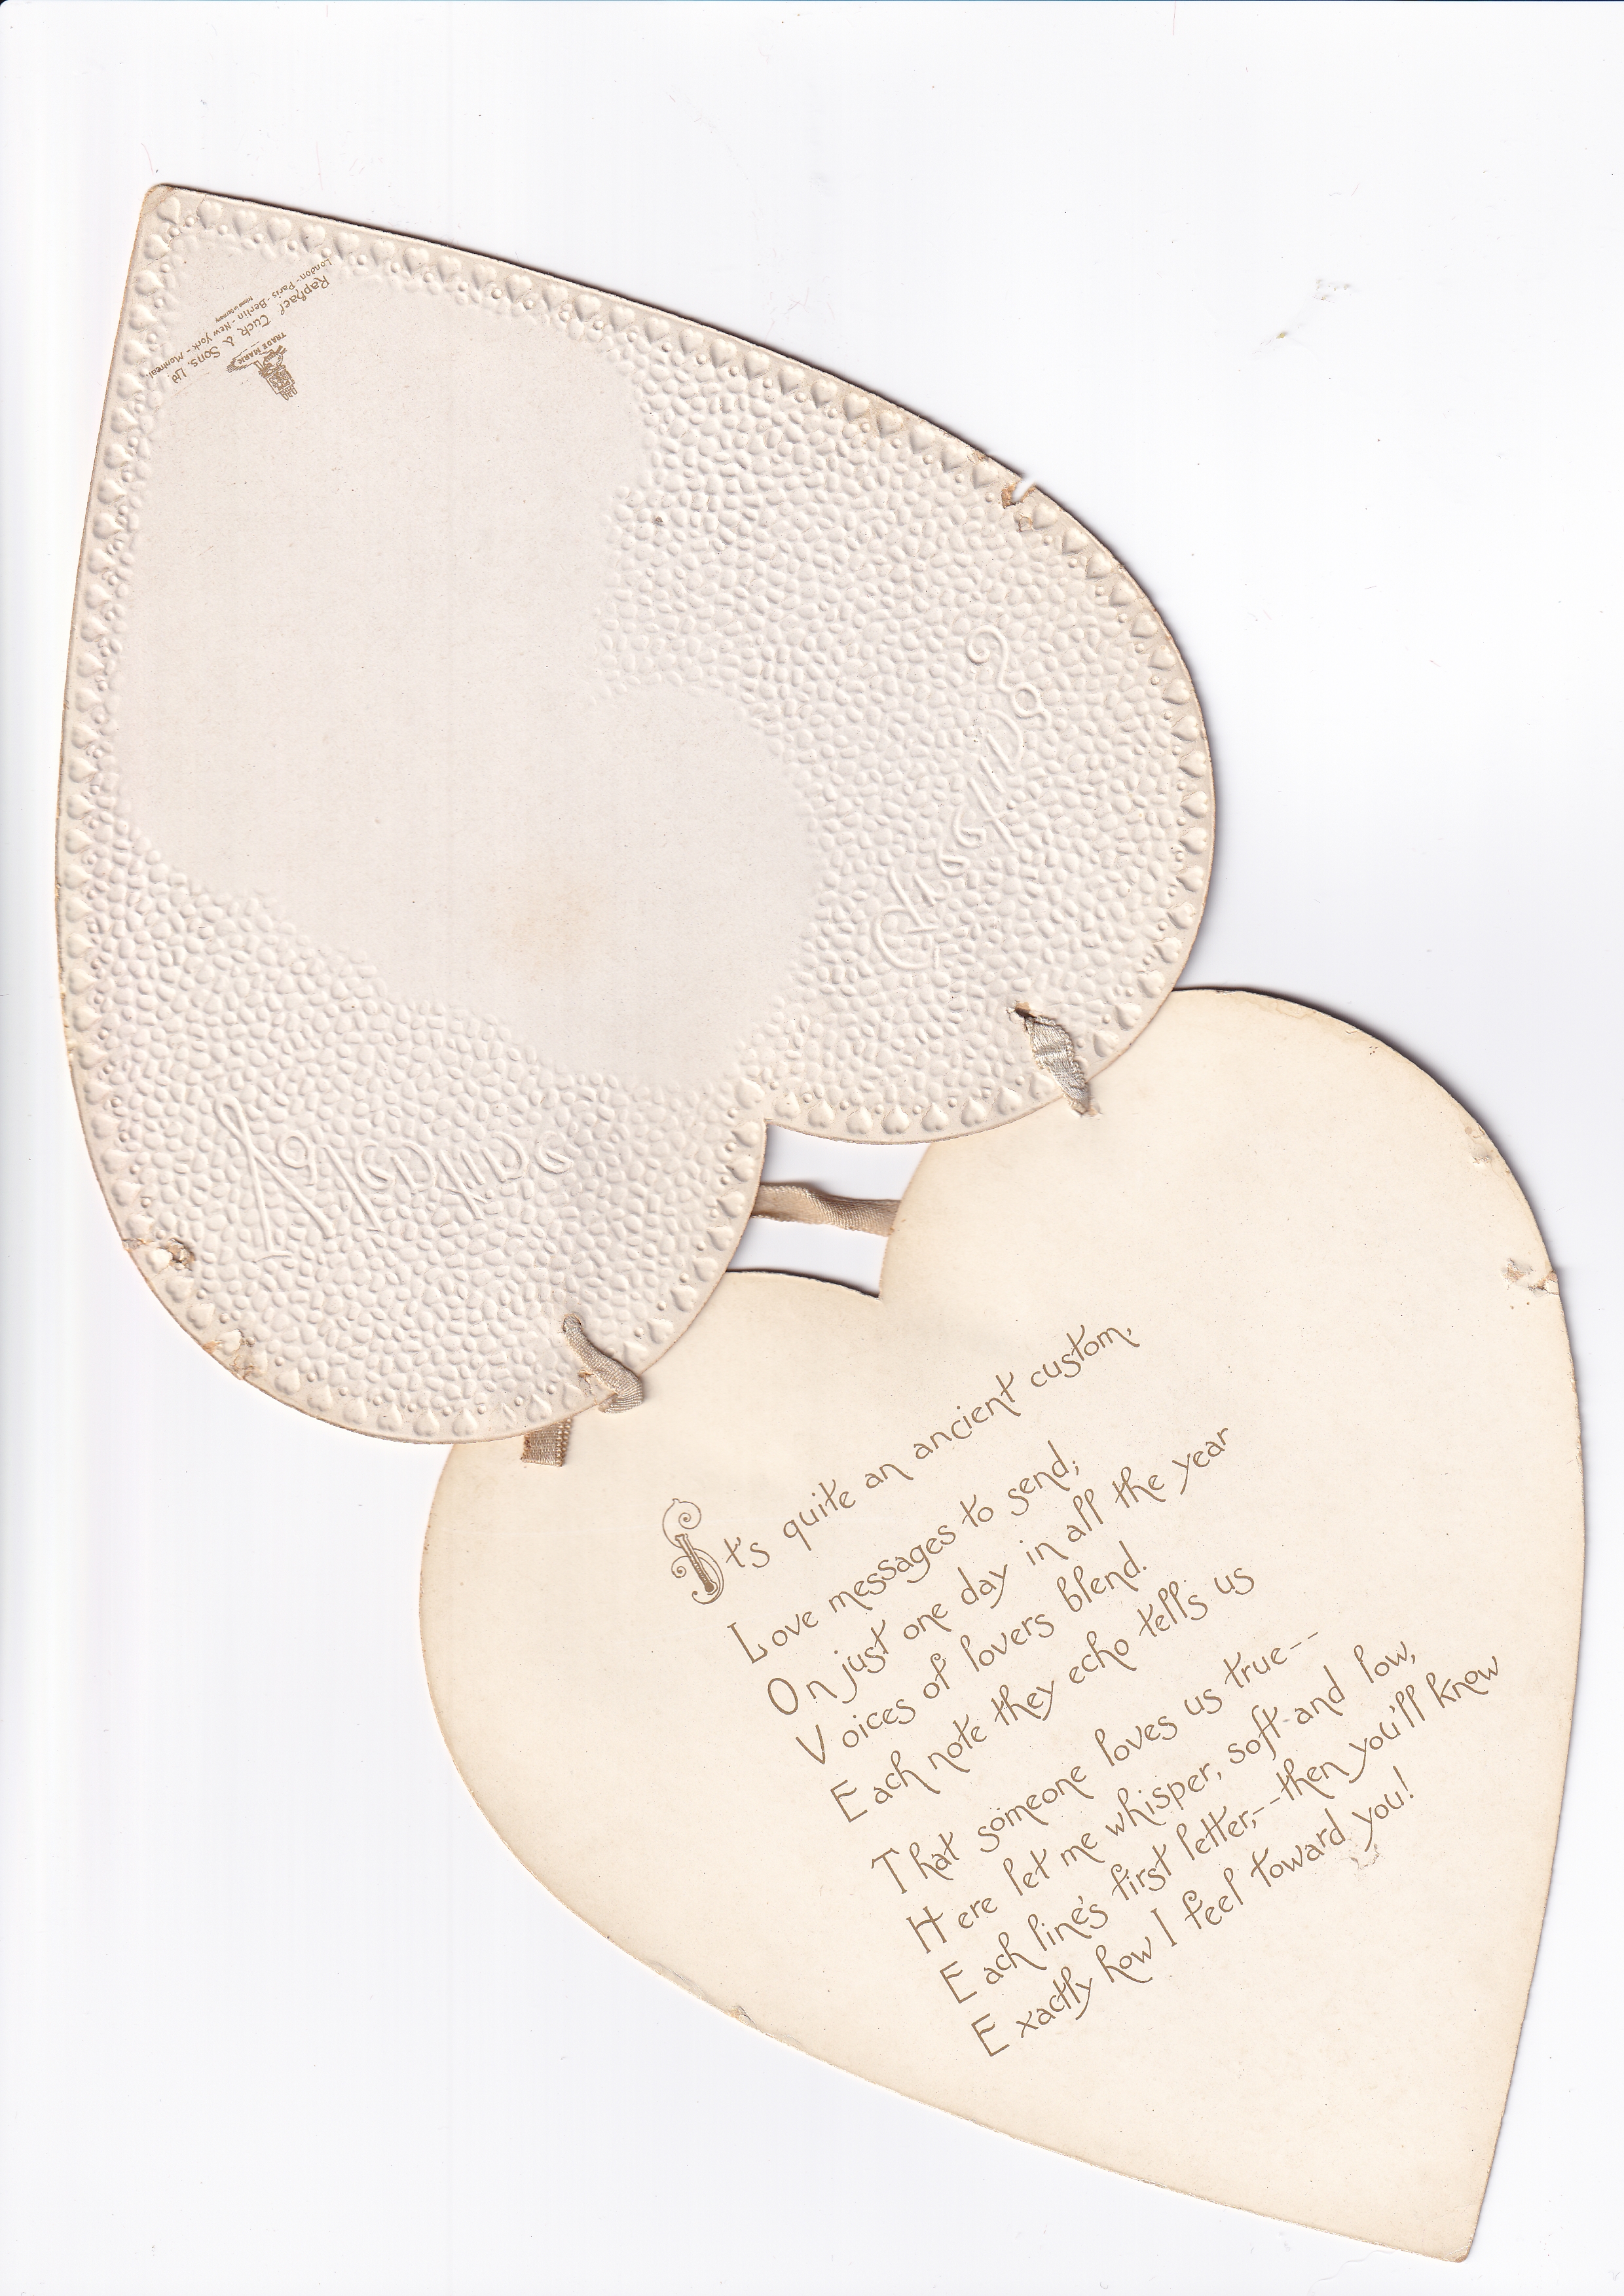 Raphael Tuck & Sons, Ltd
London - Paris - Berlin - New York - Montreal.
TRADE MARK
It's quite an ancient custom,
Love messages to send;
On just one day in all the year
Voices of lovers blend.
Each note they echo tells us
That someone loves us true--
Here let me whisper, soft and low,
Each line's first letter,--then you'll know
Exactly how I feel toward you!